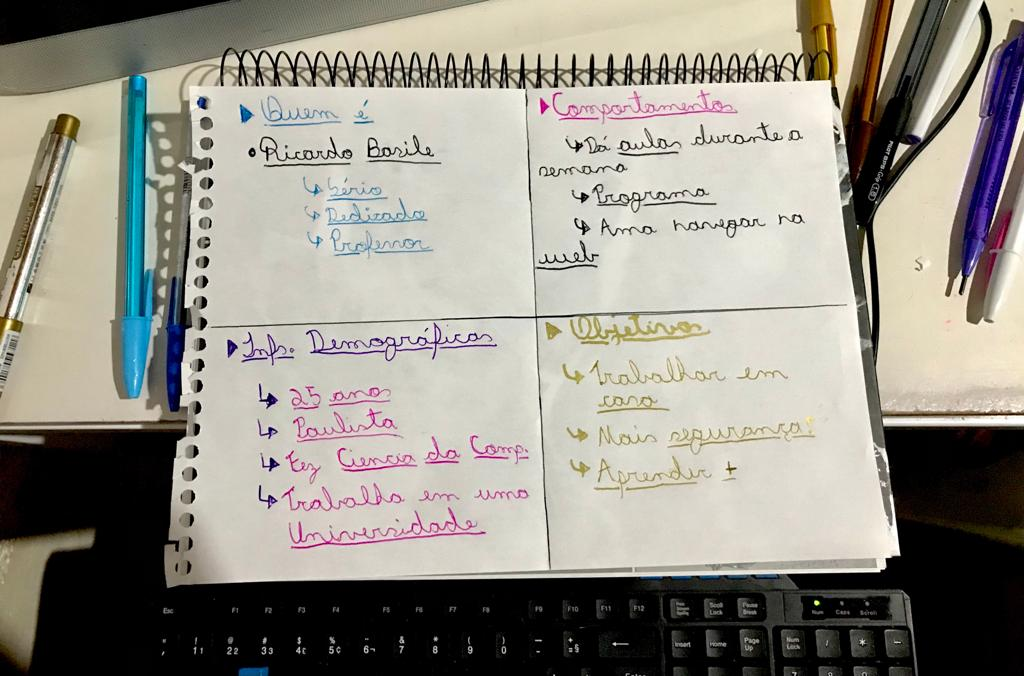 Quem é
Ricardo Basile
Sério
Dedicado
Professor
Comportamento
Dá aulas durante a
semana
Programa
Ama navegar na
web
Infs. Demográficas
25 anos
Paulista
Fez Ciencia da Comp.
Trabalha em uma
Universidade
Objetivos
Trabalhar em
casa
Mais segurança
Aprender ±
Esc F1 F2 F3 F4 F5 F6 F7 F8 F9 F10 F11 F12
Scroll Lock
Pause Break
Num Caps Scroll
Insert Home Page Up Num Lock / * -